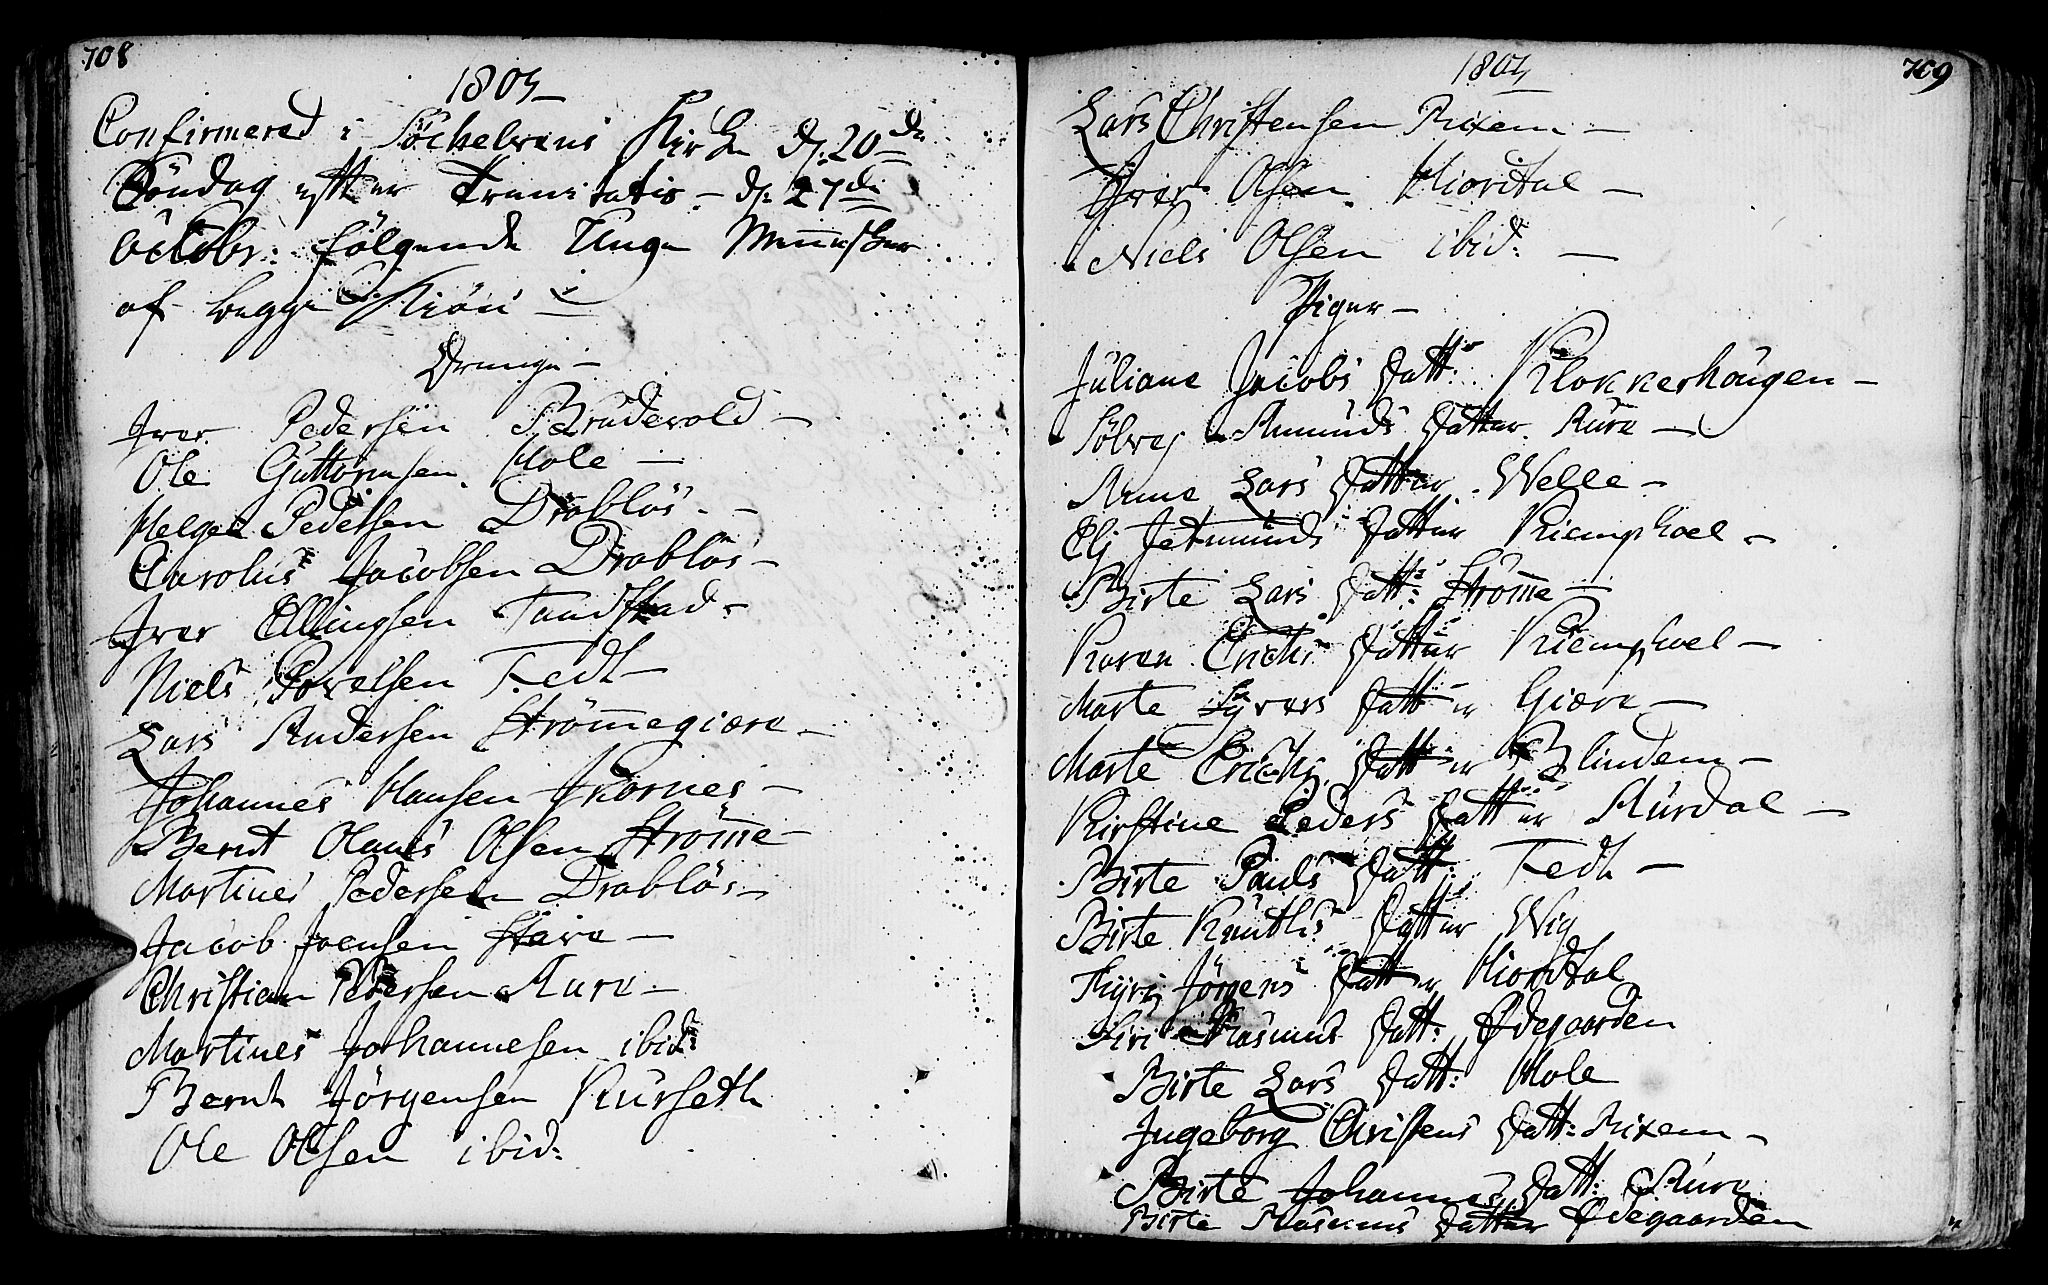 708
1805
Confirmered i Söchelvens Kirke d. 20de
Söndag efter Trinitatis - d: 27de
Octobr: fölgende Unge Mennesker
af begge Kiön -
Drenge -
Iver Pedersen Brudevold -
Ole Guttormsen Hole -
Helge Pedersen Drablös -
Carolus Jacobsen Drablös -
Iver Ellingsen Tandstad -
Niels Povelsen Fedt -
Lars Andersen Strömmegiære -
Johannes Hansen Ikornes -
Bernt Olaus Olsen Strömme -
Martines Pedersen Drablös -
Jacob Joensen Stave -
Christian Pedersen Aure -
Martines Johannesen ibid:
Bernt Jörgensen Kurseth
Ole Olsen ibid:
709
1805
Lars Christensen Rixem -
Iver Olsen Hiortdal -
Niels Olsen ibid: -
Piger -
Juliane Jacobs Datt: Klokkerhougen -
Sölvej Amunds Datter Aure -
Anne Lars Datter Welle -
Elj Jetmunds Datter Kiemphoel -
Birte Lars Datt: Strömme -
Karen Erichs Datter Kiemphoel -
Marte Syvers Datter Giære -
Marte Erichs Datter Blindem -
Kirstine Peders Datter Aurdal -
Birte Pauls Datt: Fedt -
Birte Knuths Datter Wig
Jörgens Datter Hiortdal
Siri Rasmus Datt: Ødegaarden
Birte Lars Datt: Hole
Ingeborg Christens Datt: Rixem -
Birte Johannes Datt: Aure
Birte Rasmus Datter Ødegaarden